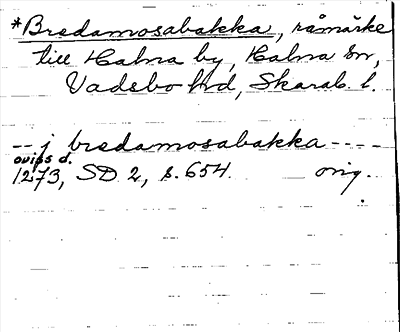 *Bredamosabakka, råmärke
till Halna by, Halna sn,
Vadsbo hd, Skarab. l.
-- j bredamosabakka ----
oviss d.
1273, SD 2, s. 654. orig.